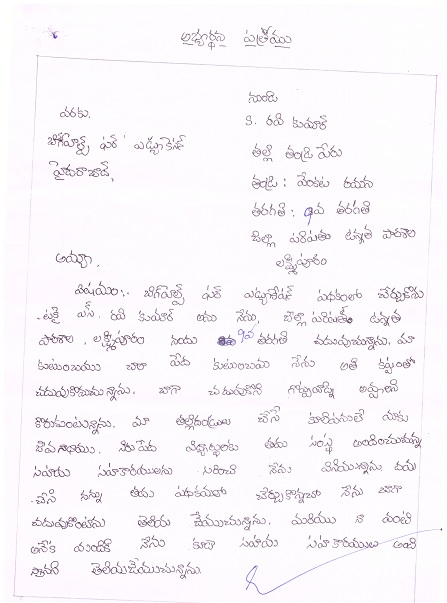 అభ్యర్థన పత్రము
నుండి
S. రవి కుమార్
తల్లి తండ్రి పేరు
తండ్రి : వెంకట రమణ
తరగతి : 9వ తరగతి
జిల్లా పరిషత్తు ఉన్నత పాఠశాల
లక్ష్మిపురం
వరకు.
బిగ్‌హెల్ప్ ఫర్ ఎడ్యుకేషన్
హైదరాబాద్,
అయ్యా.
విషయం:- బిగ్‌హెల్ప్ ఫర్ ఎడ్యుకేషన్ పథకంలో చేర్చుకొను
-టకై ఎస్. రవి కుమార్ అను నేను, జిల్లా పరిషత్ ఉన్నత
పాఠశాల, లక్ష్మిపురం నందు 9వ తరగతి చదువుచున్నాను. మా
కుటుంబము చాలా పేద కుటుంబము నేను అతి కష్టంతో
చదువుకొనుచున్నాను. బాగా చదువుకొని గొప్పవాడ్ని అవ్వాలని
కోరుకుంటున్నాను. మా తల్లిదండ్రులు చేసే కూలిపనులే మాకు
జీవనాధారము. నిరుపేద విద్యార్థులకు తమ సంస్థ అందించుచున్న
సహాయ సహకారములను గురించి నేను వినియున్నాను దయ
-చేసి నన్ను తమ పథకములో చేర్చుకొన్నచో నేను బాగా
చదువుకొంటానని తెలియ చేయుచున్నాను. మరియు నా వంటి
అనేక మందికి నేను కూడా సహాయ సహకారములు అంది
స్తానని తెలియజేయుచున్నాను.